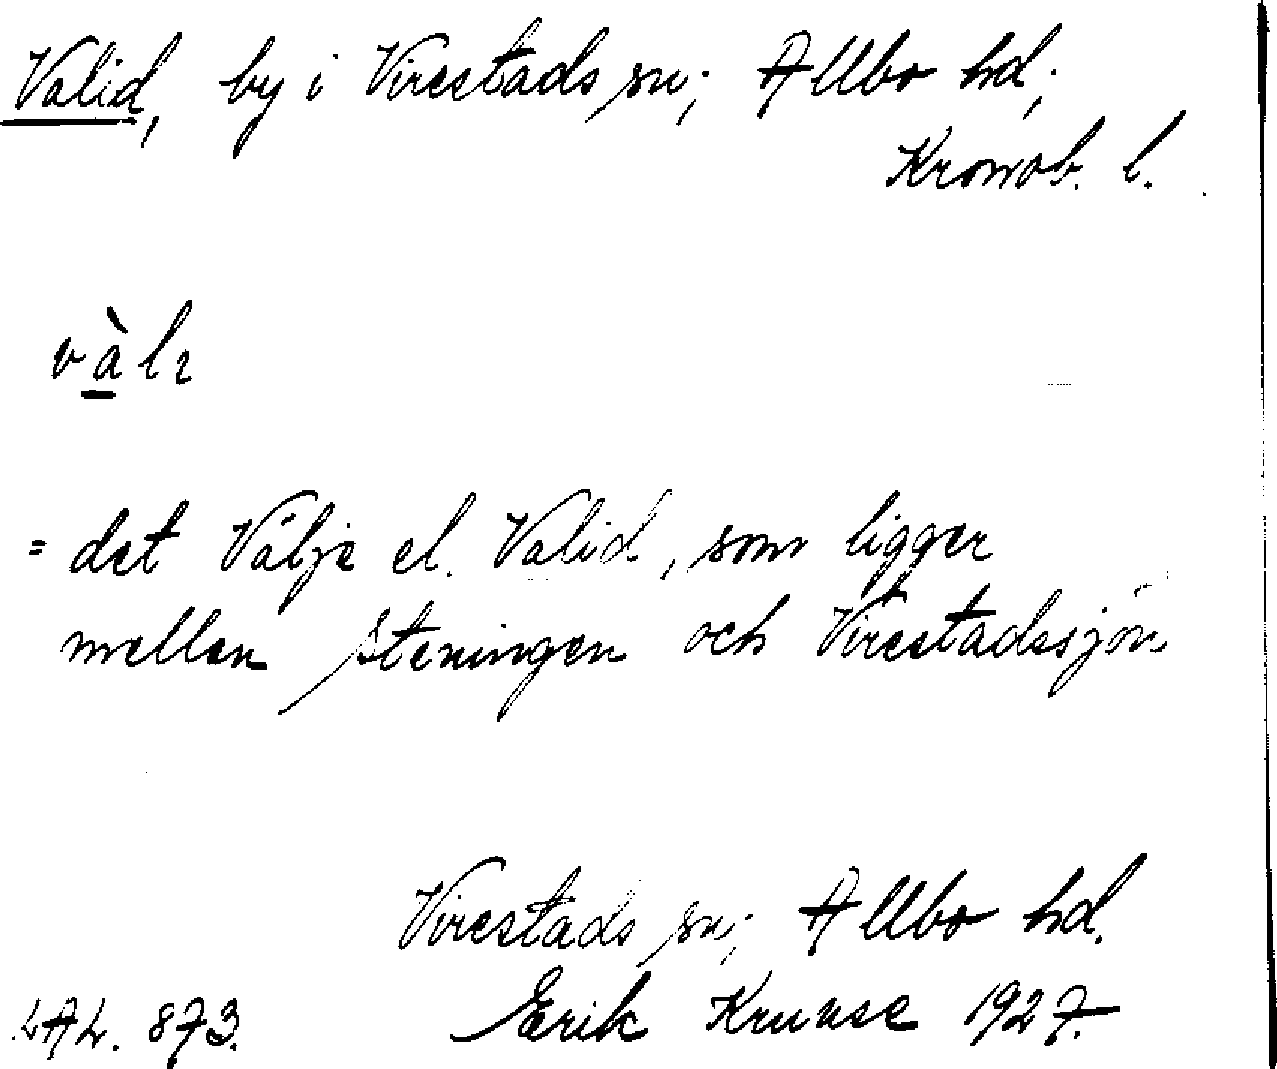 Valid, by i Virestads sn; Allbo hd;
Kronob. l.
vàlɩ
= det Välje el. Valid, som ligger
mellan Steningen och Virestadssjön
Virestads sn; Allbo hd.
LAL. 873. Erik Kruuse 1927.